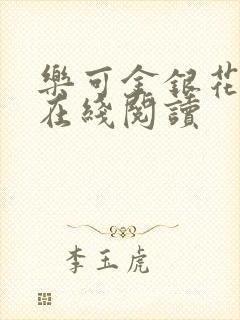 樂可金銀花
在綫閱讀
李玉虎